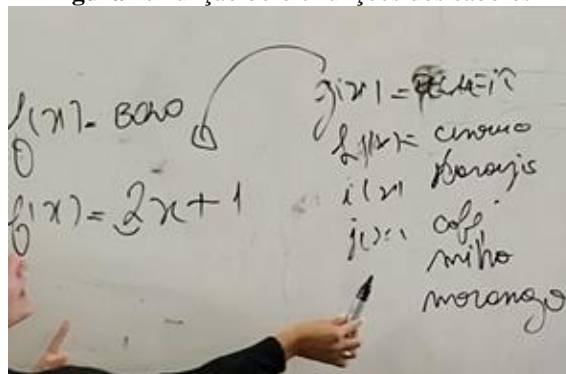 f(x)= BOLO
f(x)=2x+1
g(x)=
h(x)= cenoura
i(x) laranja
j(x)= café
milho
morango